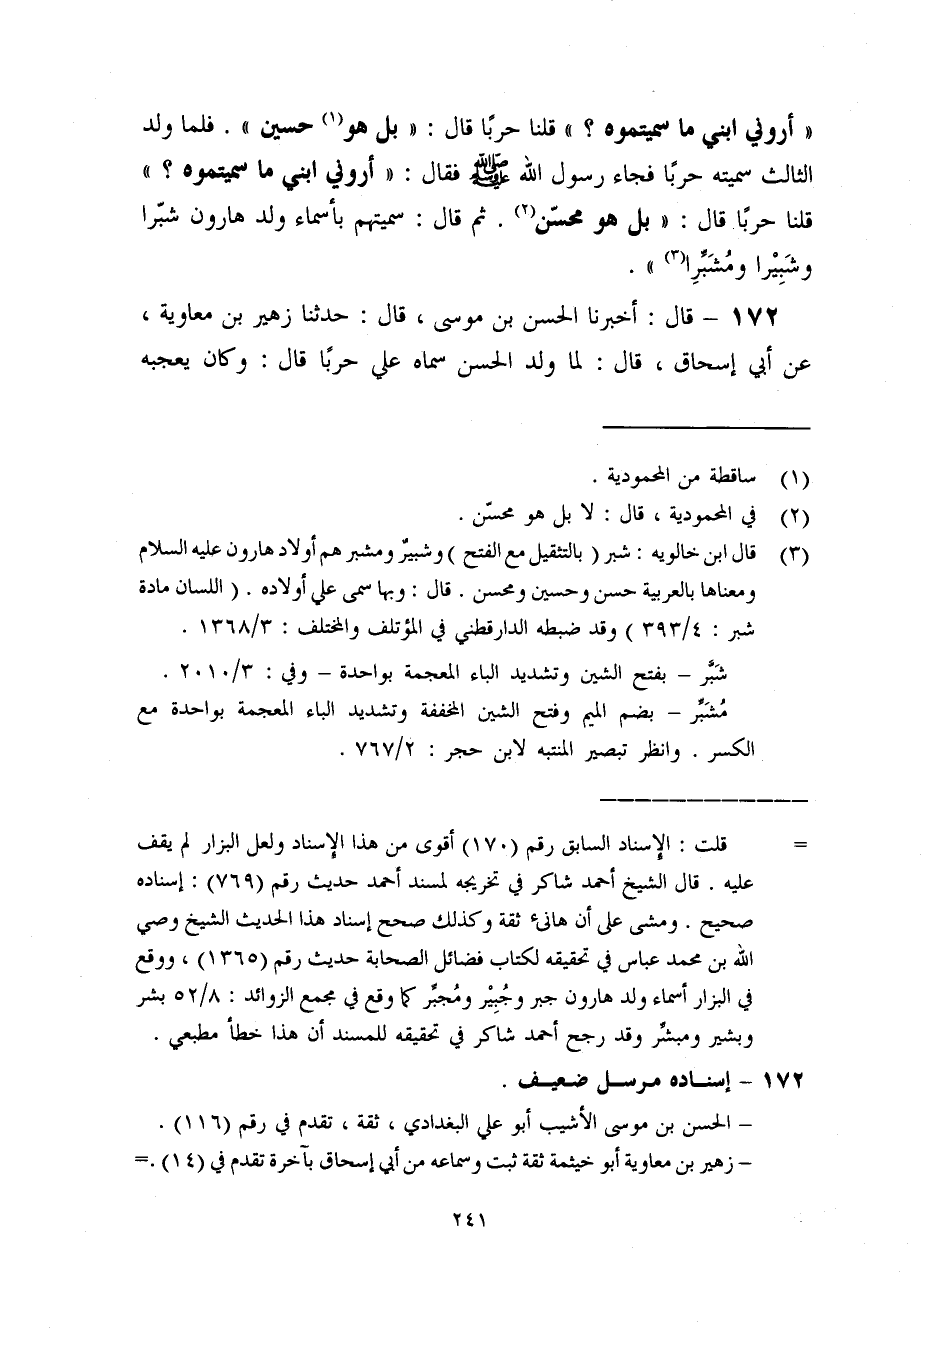 « أروني ابني ما سميتموه ؟ » قلنا حربًا قال : « بل هو(١) حسين » . فلما ولد
الثالث سميته حربًا فجاء رسول الله ﷺ فقال : « أروني ابني ما سميتموه ؟ »
قلنا حربًا قال : « بل هو محسّن(٢) . ثم قال : سميتهم بأسماء ولد هارون شبّرا
وشَبِيْرا ومُشَبِّرا(٣) » .
١٧٢ – قال : أخبرنا الحسن بن موسى ، قال : حدثنا زهير بن معاوية ،
عن أبي إسحاق ، قال : لما ولد الحسن سماه علي حربًا قال : وكان يعجبه
(١) ساقطة من المحمودية .
(٢) في المحمودية ، قال : لا بل هو محسّن .
(٣) قال ابن خالويه : شبر ( بالتثقيل مع الفتح ) وشبيرٌ ومشبر هم أولاد هارون عليه السلام
ومعناها بالعربية حسن وحسين ومحسن . قال : وبها سمى علي أولاده . ( اللسان مادة
شبر : ٣٩٣/٤ ) وقد ضبطه الدارقطني في المؤتلف والمختلف : ١٣٦٨/٣ .
شَبَّر – بفتح الشين وتشديد الباء المعجمة بواحدة – وفي : ٢٠١٠/٣ .
مُشَبِّر – بضم الميم وفتح الشين المخففة وتشديد الباء المعجمة بواحدة مع
الكسر . وانظر تبصير المنتبه لابن حجر : ٧٦٧/٢ .
= قلت : الإسناد السابق رقم (١٧٠) أقوى من هذا الإسناد ولعل البزار لم يقف
عليه . قال الشيخ أحمد شاكر في تخريجه لمسند أحمد حديث رقم (٧٦٩) : إسناده
صحيح . ومشى على أن هانئ ثقة وكذلك صحح إسناد هذا الحديث الشيخ وصي
الله بن محمد عباس في تحقيقه لكتاب فضائل الصحابة حديث رقم (١٣٦٥) ، ووقع
في البزار أسماء ولد هارون جبر وجُبِيْر ومُجبِّر كما وقع في مجمع الزوائد : ٥٢/٨ بشر
وبشير ومبشِّر وقد رجح أحمد شاكر في تحقيقه للمسند أن هذا خطأ مطبعي .
١٧٢ – إسناده مرسل ضعيف .
– الحسن بن موسى الأشيب أبو علي البغدادي ، ثقة ، تقدم في رقم (١١٦) .
– زهير بن معاوية أبو خيثمة ثقة ثبت وسماعه من أبي إسحاق بآخرة تقدم في (١٤) .=
٢٤١